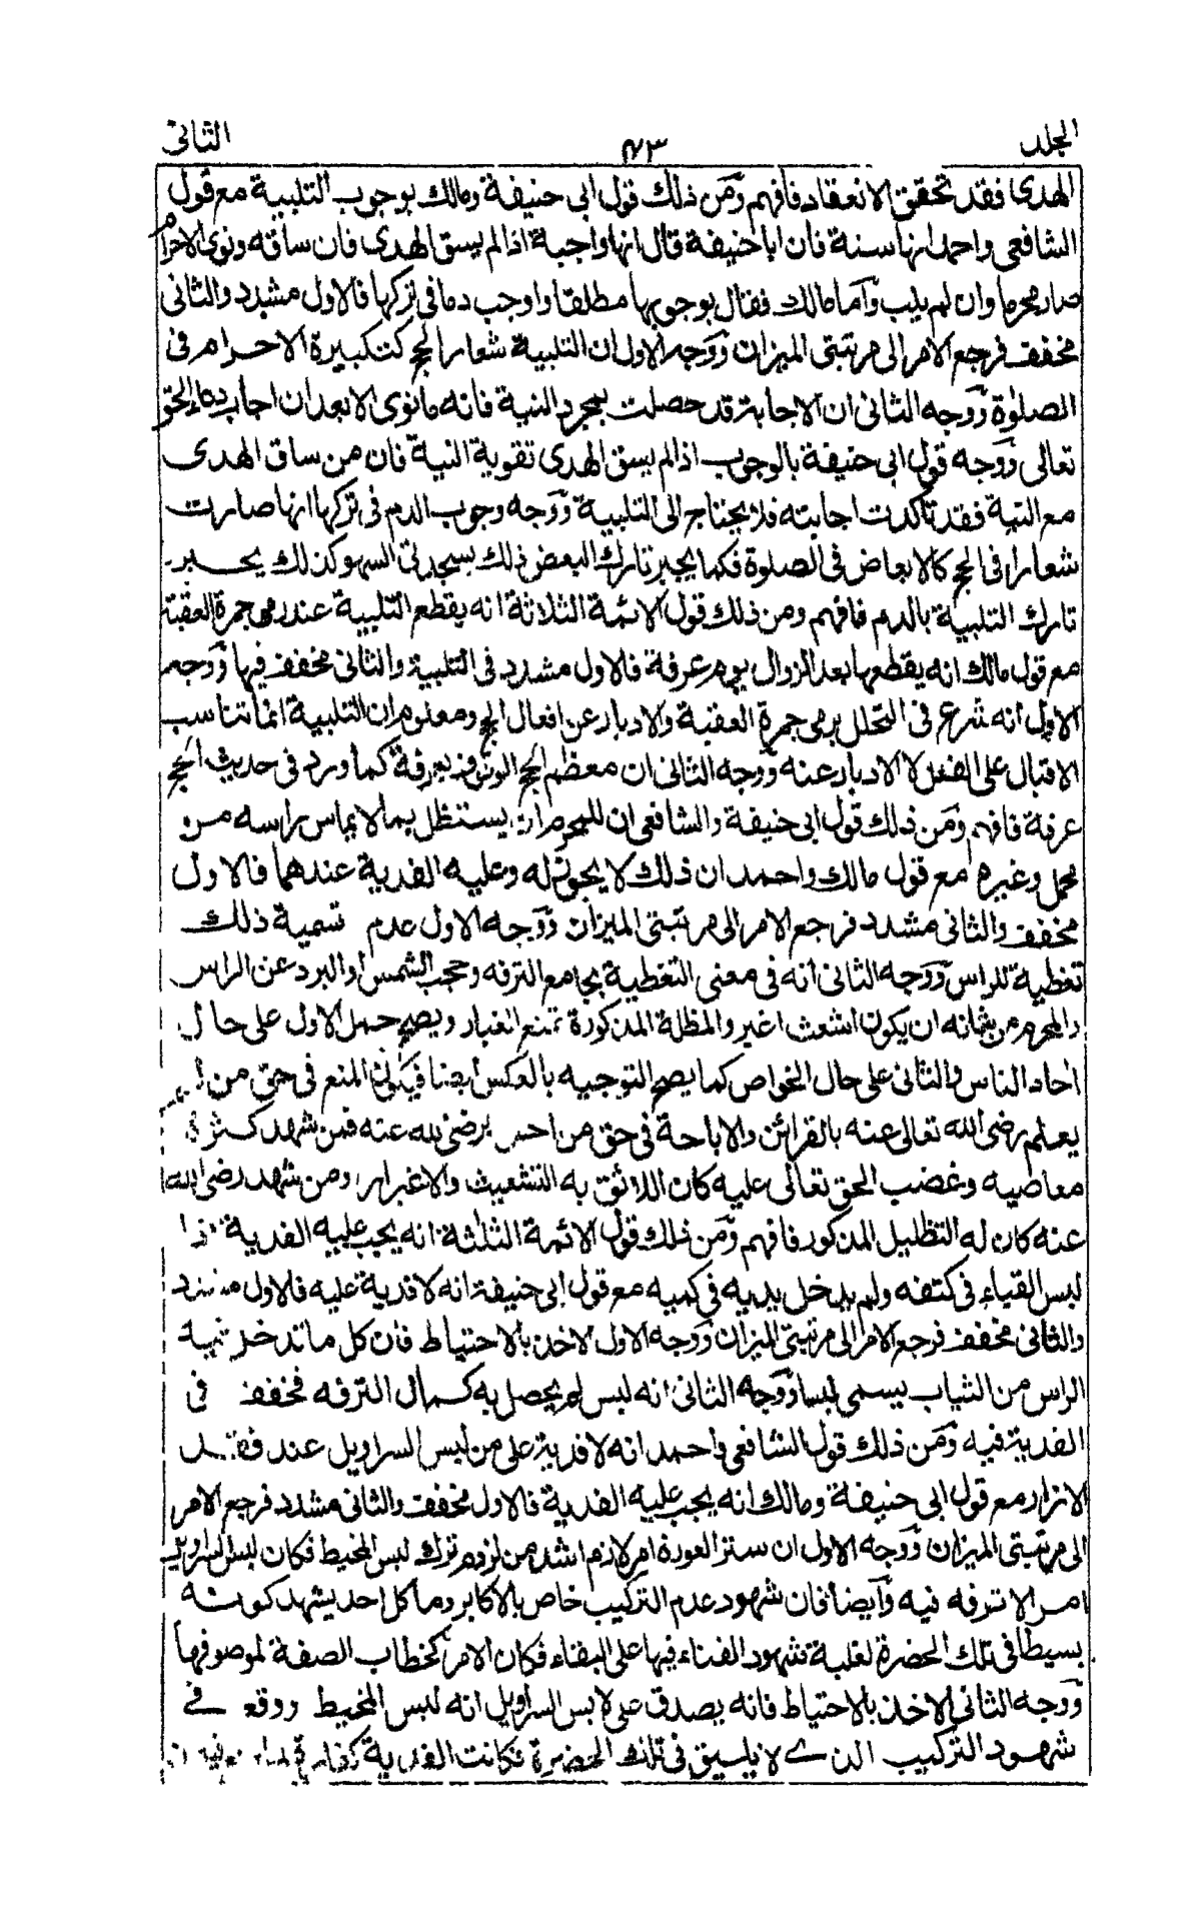 المجلد ٤٣ الثانى
الهدى فقد تحقق الانعقاد فافهم ومن ذلك قول ابى حنيفة ومالك بوجوب التلبية مع قول
الشافعى واحمد انها سنة فان ابا حنيفة قال انها واجبة اذا لم يسق الهدى فان ساقه ونوى الاحرام
صار محرما وان لم يلب وأما مالك فقال بوجوبها مطلقا واوجب دما فى تركها فالاول مشدد والثانى
مخفف فرجع الامر الى مرتبتى الميزان ووجه الاول ان التلبية شعار الحج كتكبيرة الاحرام فى
الصلوة ووجه الثانى ان الاجابة قد حصلت بمجرد النية فانه ما نوى الا بعد ان اجاب دعاء الحق
تعالى ووجه قول ابى حنيفة بالوجوب اذا لم يسق الهدى تقوية النية فان من ساق الهدى
مع النية فقد تاكدت اجابته فلا يحتاج الى التلبية ووجه وجوب الدم فى تركها انها صارت
شعارا فى الحج كالابعاض فى الصلوة فكما يجبر تارك البعض ذلك بسجدتى السهو كذلك يجبر
تارك التلبية بالدم فافهم ومن ذلك قول الائمة الثلاثة انه يقطع التلبية عند رمى جمرة العقبة
مع قول مالك انه يقطعها بعد الزوال يوم عرفة فالاول مشدد فى التلبية والثانى مخفف فيها ووجه
الاول انه شرع فى التحلل برمى جمرة العقبة والادبار عن افعال الحج ومعلوم ان التلبية انما تناسب
الاقبال على الفعل لا الادبار عنه ووجه الثانى ان معظم الحج الوقوف بعرفة كما ورد فى حديث الحج
عرفة فافهم ومن ذلك قول ابى حنيفة والشافعى ان للمحرم ان يستظل بما لا يماس راسه من
محمل وغيره مع قول مالك واحمد ان ذلك لا يجوز له وعليه الفدية عندهما فالاول
مخفف والثانى مشدد فرجع الامر الى مرتبتى الميزان ووجه الاول عدم تسمية ذلك
تغطية للراس ووجه الثانى انه فى معنى التغطية بجامع الترفه وحجب الشمس والبرد عن الراس
والمحرم من شانه ان يكون اشعث اغبر والمظلة المذكورة تمنع الغبار ويصح حمل الاول على حال
احاد الناس والثانى على حال الخواص كما يصح التوجيه بالعكس ايضا فيكون المنع فى حق من لم
يعلم رضى الله تعالى عنه بالقرائن والاباحة فى حق من احس برضى الله عنه فمن شهد كثرة
معاصيه وغضب الحق تعالى عليه كان اللائق به التشعيث والاغبرار ومن شهد رضى الله
عنه كان له التظليل المذكور فافهم ومن ذلك قول الائمة الثلثة انه يجب عليه الفدية اذا
لبس القباء فى كتفه ولم يدخل يديه فى كميه مع قول ابى حنيفة انه لا فدية عليه فالاول مشدد
والثانى مخفف فرجع الامر الى مرتبتى الميزان ووجه الاول الاخذ بالاحتياط فان كل ما تدخل فيه
الراس من الثياب يسمى لبسا ووجه الثانى انه لبس لم يحصل به كمال الترفه فخفف فى
الفدية فيه ومن ذلك قول الشافعى واحمد انه لا فدية على من لبس السراويل عند فقد
الازار مع قول ابى حنيفة ومالك انه يجب عليه الفدية فالاول مخفف والثانى مشدد فرجع الامر
الى مرتبتى الميزان ووجه الاول ان ستر العورة امر لازم اشد من لزوم ترك لبس المخيط فكان لبس السراويل
امر لا ترفه فيه وأيضا فان شهود عدم التركيب خاص بالاكابر وما كل احد يشهد كونه
بسيطا فى تلك الحضرة لغلبة شهود الفناء فيها على البقاء فكان الامر كخطاب الصفة لموصوفها
ووجه الثانى الاخذ بالاحتياط فانه يصدق على لابس السراويل انه لبس المخيط ووقع فے
شهود التركيب الذے لا يليق فى تلك الحضرة فكانت الفدية كفارة